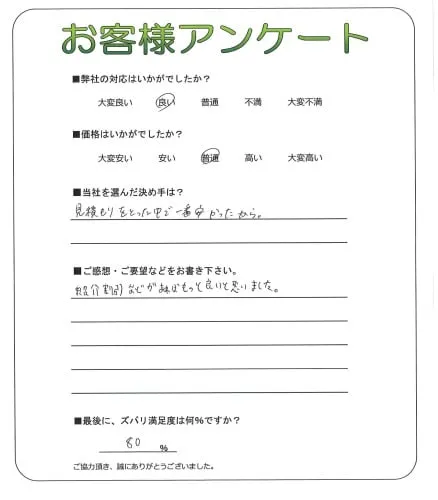 お客様アンケート
■弊社の対応はいかがでしたか？
大変良い 良い 普通 不満 大変不満
■価格はいかがでしたか？
大変安い 安い 普通 高い 大変高い
■当社を選んだ決め手は？
見積もりをとった中で一番安かったから。
■ご感想・ご要望などをお書き下さい。
紹介割引などがあればもっと良いと思いました。
■最後に、ズバリ満足度は何%ですか？
80 %
ご協力頂き、誠にありがとうございました。